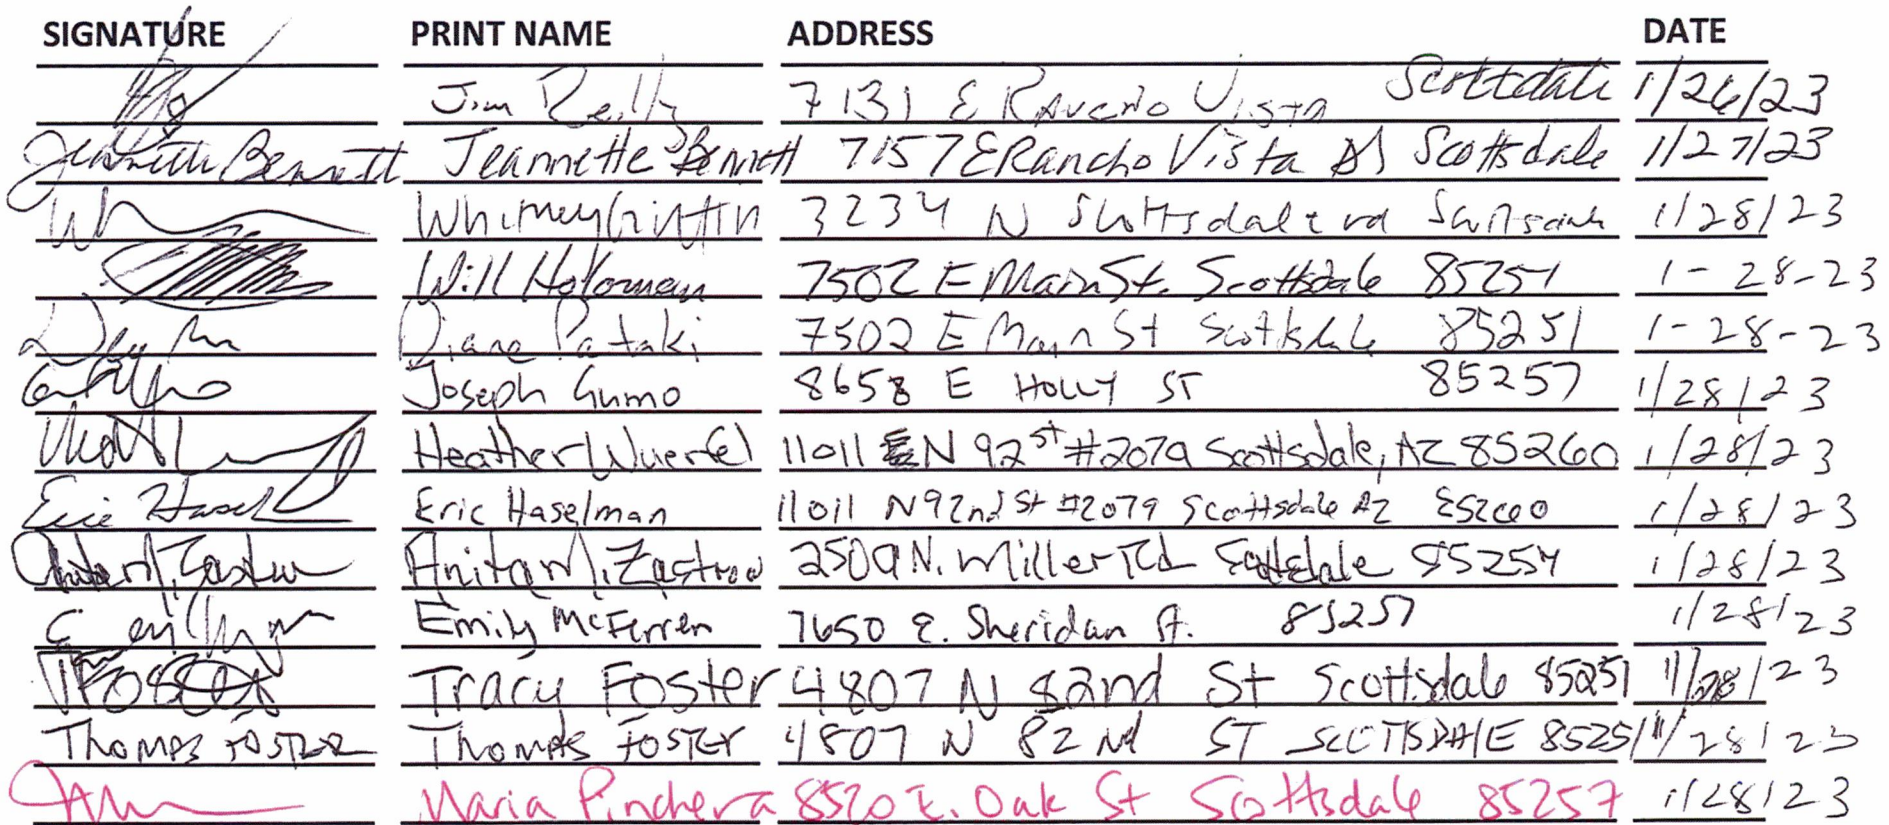 SIGNATURE PRINT NAME ADDRESS DATE
Jim Reilly 7131 E Rancho Vista Scottsdale 1/26/23
Jeannette Bennett Jeannette Bennett 7157 E Rancho Vista Dr Scottsdale 1/27/23
Whitney Griffin 3234 N Scottsdale rd Scottsdale 1/28/23
Will Holoman 7502 E Main St. Scottsdale 85251 1-28-23
Diane Pataki 7502 E Main St Scottsdale 85251 1-28-23
Joseph Gumo 8658 E HOLLY ST 85257 1/28/23
Heather Wuerfel 11011 N 92st #2079 Scottsdale, AZ 85260 1/28/23
Eric Hasel Eric Haselman 11011 N 92nd St #2079 Scottsdale AZ 85260 1/28/23
Anita M. Zastrow Anita M. Zastrow 2509 N. Miller Rd Scottsdale 85257 1/28/23
Emily McFerren 7650 E. Sheridan St. 85257 1/28/23
TFOSTER Tracy Foster 4807 N 82nd St Scottsdale 85251 1/28/23
Thomas FOSTER Thomas FOSTER 4807 N 82nd ST SCOTTSDALE 85251 1/28/23
Maria Pinchera 8520 E. Oak St Scottsdale 85257 1/28/23